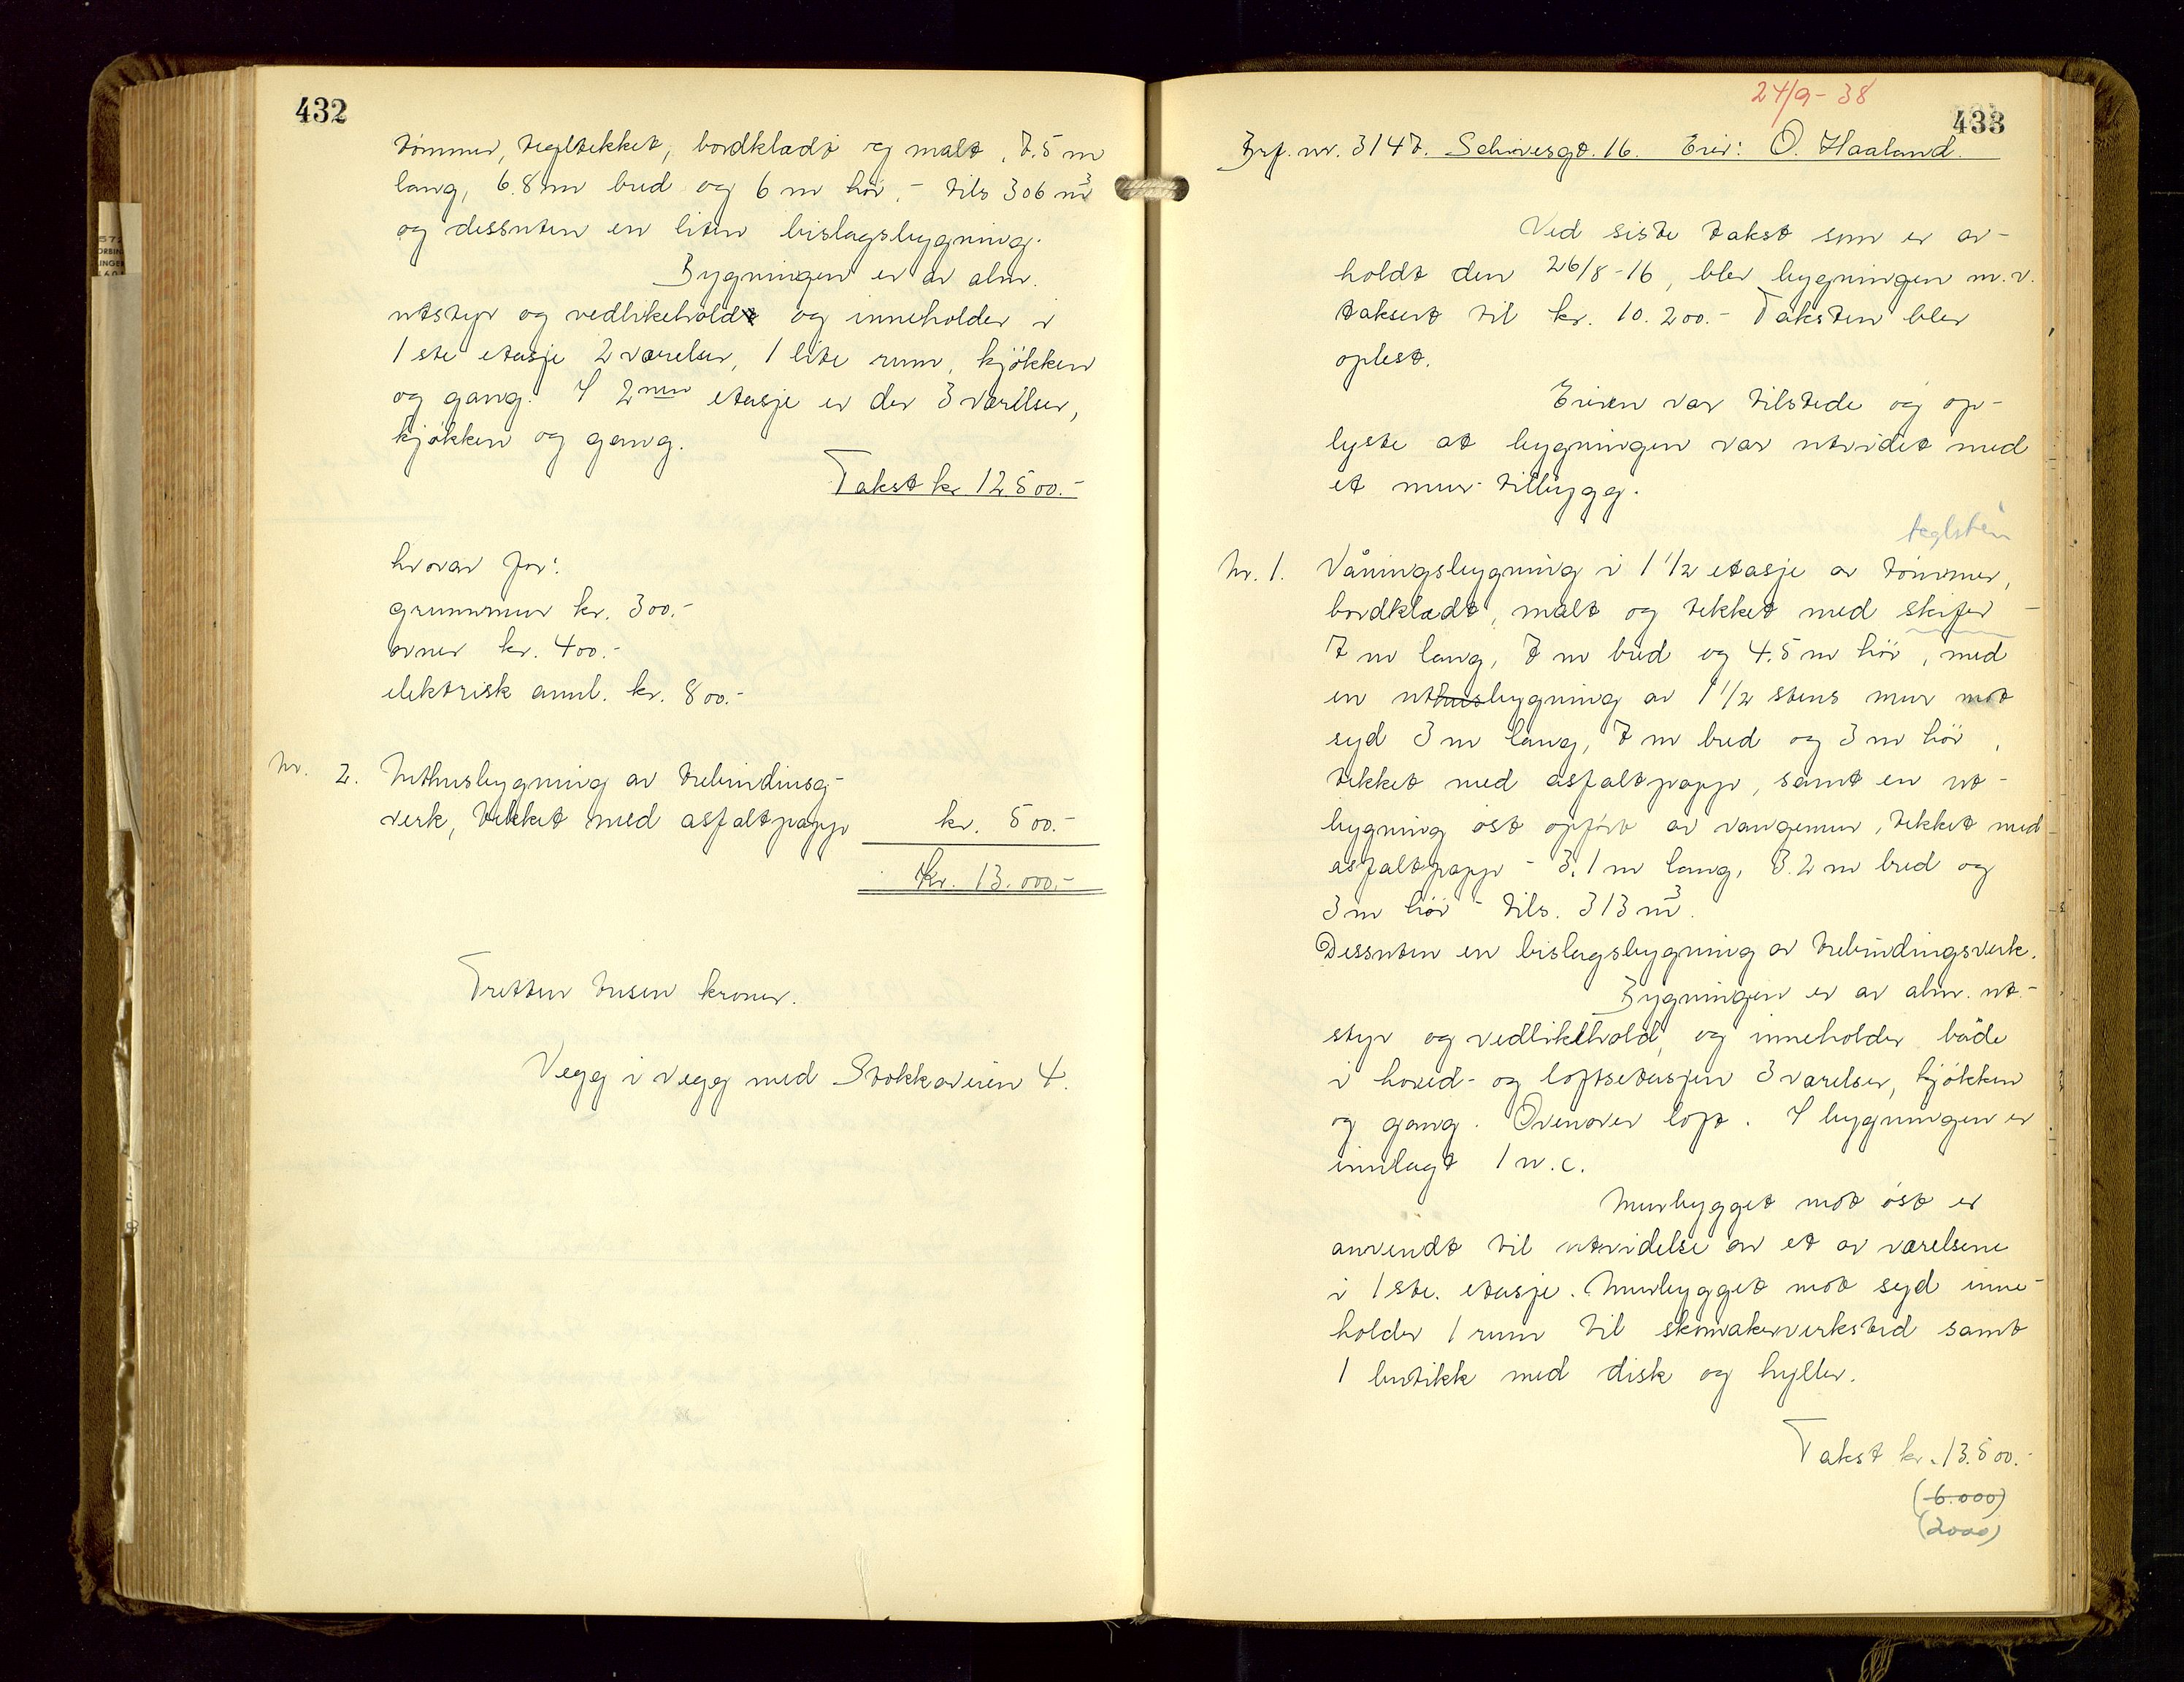 432
tømmer, tegltekket, bordkledt og malt, 7.5 m
lang, 6.8 m bred og 6 m høi, - tils 306 m³
og dessuten en liten bislagsbygning.
Bygningen er av alm.
utstyr og vedlikehold og inneholder i
1ste etasje 2 værelser, 1 lite rum, kjøkken
og gang. I 2nen etasje er der 3 værelser,
kjøkken og gang.
Takst kr 12500.-
hvorav for:
grunnmur kr. 300.-
ovner kr. 400.-
elektrisk annl. kr. 800.-
Nr. 2. Uthusbygning av trebindinsg-
verk, tekket med asfaltpapp kr. 500.-
kr. 13.000.-
Tretten tusen kroner.
Vegg i vegg med Stokkaveien 4.
24/9-38
433
Brf. nr. 3147. Schivesgt. 16. Eier: O. Haaland.
Ved siste takst som er av-
holdt den 26/8-16, blev bygningen m.v.
taksert til kr. 10.200.- Taksten blev
oplest.
Eieren var tilstede og op-
lyste at bygningen var utvidet med
et mur-tilbygg.
teglsten
Nr. 1. Våningsbygning i 1 1/2 etasje av tømmer,
bordkledt, malt og tekket med skifer -
7 m lang, 7 m bred og 4.5 m høi, med
en uthusbygning av 1 1/2 stens mur mot
syd 3 m lang, 7 m bred og 3 m høi,
tekket med asfaltpapp, samt en ut-
bygning øst opført av vangemur, tekket med
asfaltpapp - 3.1 m lang, 3.2 m bred og
3 m høi - tils. 313 m³.
Dessuten en bislagsbygning av trebindingsverk.
Bygningen er av alm. ut-
styr og vedlikehold, og inneholder både
i hoved- og loftsetasjen 3 værelser, kjøkken
og gang. Ovenover loft. I bygningen er
innlagt 1 w.c.
Murbygget mot øst er
anvendt til utvidelse av et av værelsene
i 1ste. etasje. Murbygget mot syd inne-
holder 1 rum til skomakerverksted samt
1 butikk med disk og hyller.
Takst kr. 13.500.-
(6.000)
(2000)